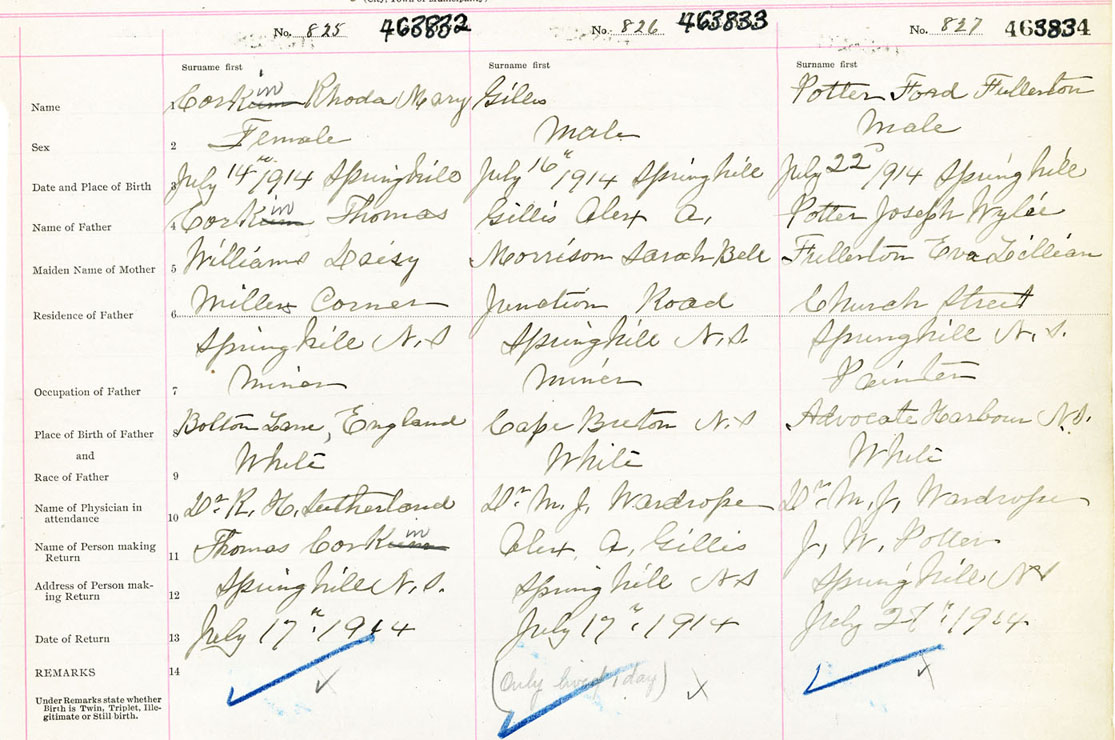 (City, Town or Municipality)
No. 825 463832 No. 826 463833 No. 827 463834
Surname first Surname first Surname first
Name 1 Corkum in Rhoda Mary Gillis Potter Ford Fullerton
Sex 2 Female Male Male
Date and Place of Birth 3 July 14th 1914 Springhill July 16th 1914 Springhill July 22nd 1914 Springhill
Name of Father 4 Corkum in Thomas Gillis Alex A. Potter Joseph Wylie
Maiden Name of Mother 5 Williams Daisy Morrison Sarah Bell Fullerton Eva Lillian
Residence of Father 6 Millers Corner Junction Road Church Street
Springhill N.S Springhill N.S Springhill N.S.
Occupation of Father 7 Miner Miner Painter
Place of Birth of Father 8 Bolton Lane, England Cape Breton N.S Advocate Harbour N.S.
and
Race of Father 9 White White White
Name of Physician in attendance 10 Dr R. H. Sutherland Dr M. J. Wardrope Dr M. J. Wardrope
Name of Person making Return 11 Thomas Corkum in Alex. A. Gillis J. W. Potter
Address of Person making Return 12 Springhill N.S. Springhill N.S Springhill N.S
Date of Return 13 July 17th 1914 July 17th 1914 July 27th 1914
REMARKS 14 (Only lived 1 day)
Under Remarks state whether
Birth is Twin, Triplet, Ille-
gitimate or Still birth.